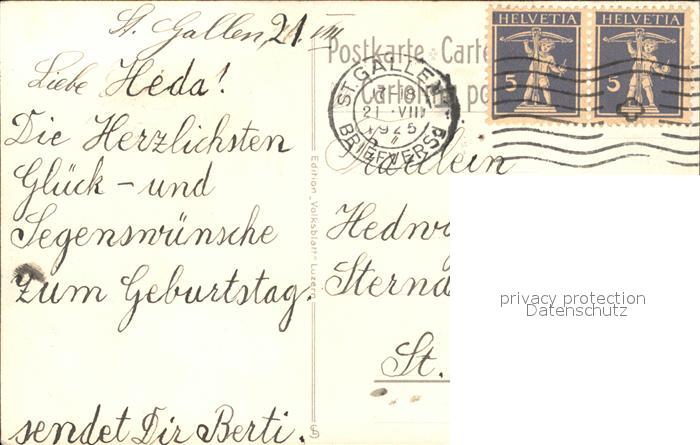 St. Gallen, 21. VIII
Liebe Heda!
Die Herzlichsten
Glück - und
Segenswünsche
Zum Geburtstag.
sendet Dir Berti.
Edition „Volksblatt“ Luzern
Postkarte - Carte
HELVETIA
5
HELVETIA
5
ST. GALLEN
17-18
21. VIII
1925
BRIEFVERSD
Fräulein
Hedw
Stern
St.
privacy protection
Datenschutz